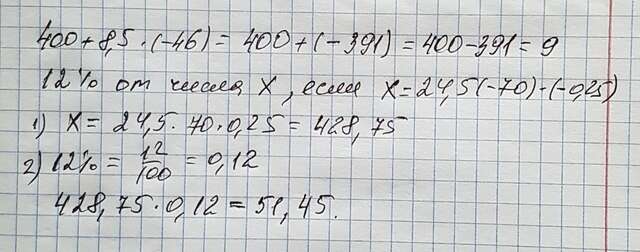 400+8,5·(-46)= 400+(-391)=400-391=9
12% от числа X, если X=24,5(-70)·(-0,25)
1) X= 24,5·70·0,25=428,75
2) 12%= 12/100 =0,12
428,75·0,12=51,45.